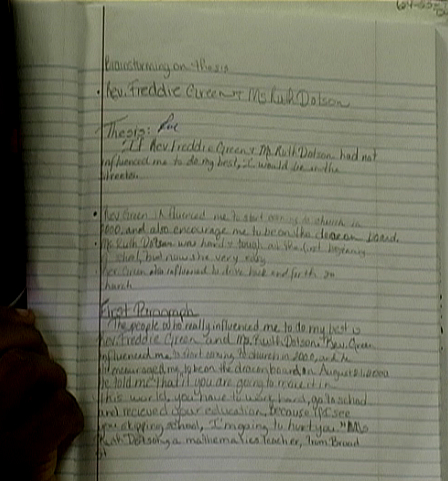 Brainstorming on thesis
• Rev. Freddie Green + Ms Ruth Dotson
Thesis:
If Rev Freddie Green + Ms. Ruth Dotson had not
influenced me to do my best, I would be in the
streets.
• Rev Green influenced me to start coming to church in
2000, and also encourage me to be on the deacon board.
• Ms Ruth Dotson was hard + tough at the first beginning
of school, but now she very easy
• Rev Green also influenced to drive back and forth to
church
First Paragraph
The people who really influenced me to do my best is
Rev. Freddie Green and Ms. Ruth Dotson. Rev. Green
influenced me to start coming to church in 2000, and he
encouraged me to be on the deacon board, on August
He told me that if you are going to make it in
this world, you have to work hard, go to school
and recieved your education, because "if I see
you skipping school, I'm going to hurt you." Ms
Ruth Dotson, a mathematics teacher, from Broad